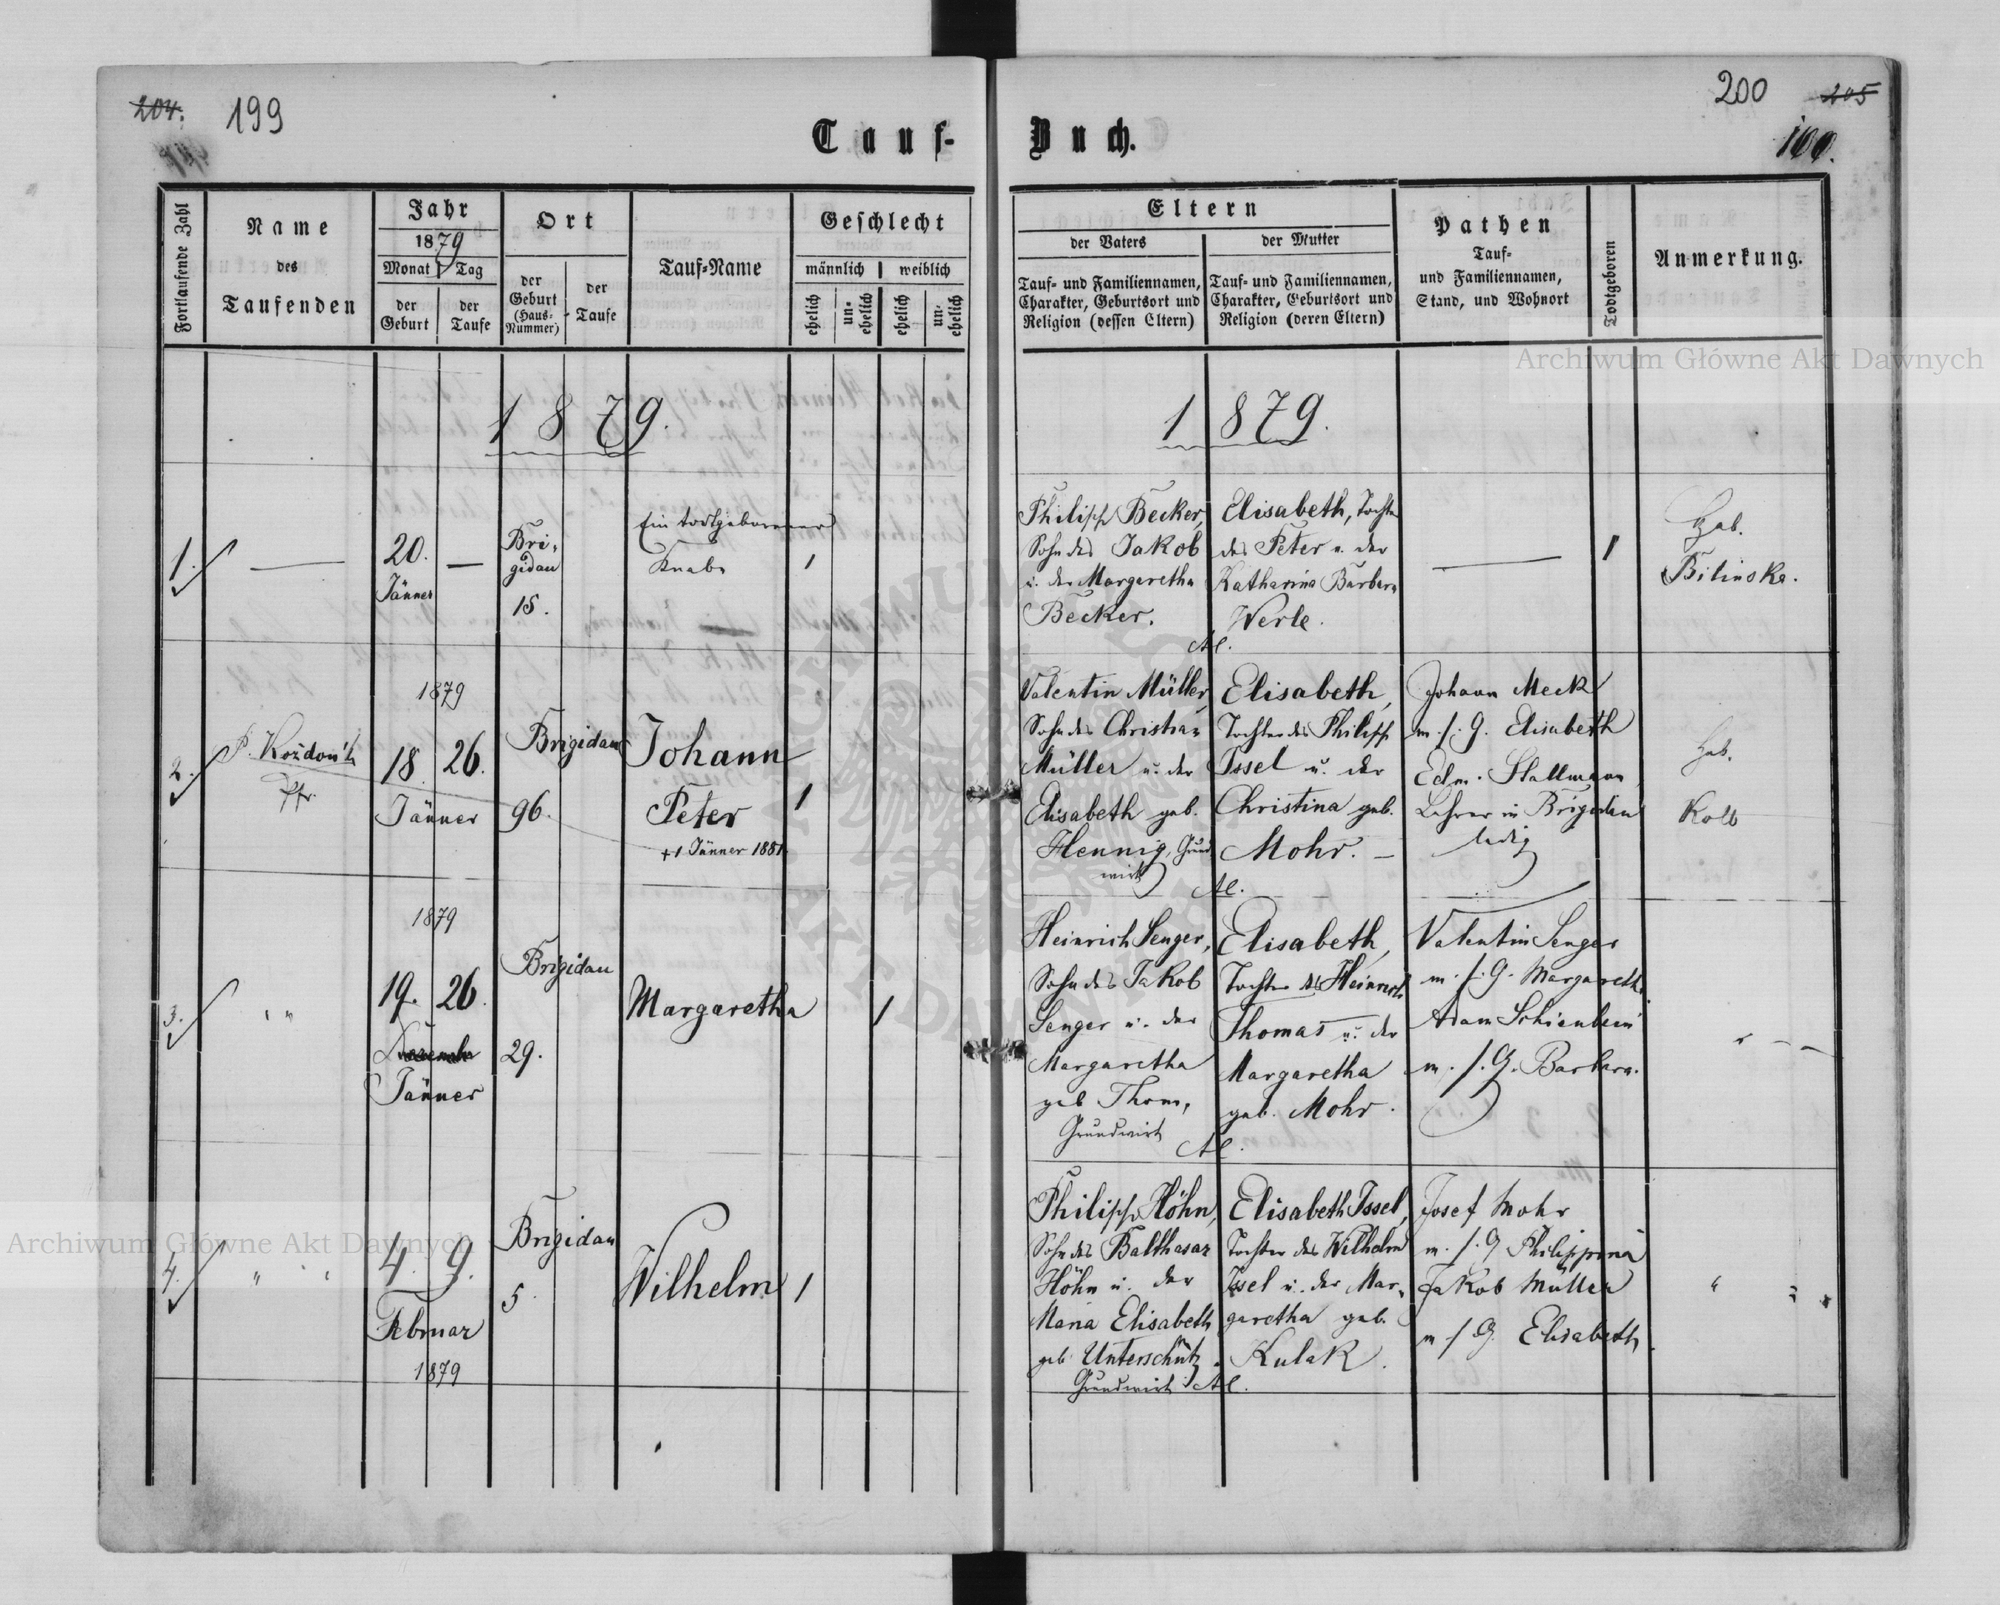 204.
199
200
205
100.
Tauf-
Buch.
Fortlaufende Zahl
Name
des
Taufenden
Jahr
1879
Monat
Tag
der
Geburt
der
Taufe
Ort
der
Geburt
(Haus-
Nummer)
der
Taufe
Tauf-Name
Geschlecht
männlich
weiblich
ehelich
un-
ehelich
ehelich
un-
ehelich
Eltern
der Vaters
der Mutter
Tauf- und Familiennamen,
Charakter, Geburtsort und
Religion (dessen Eltern)
Tauf- und Familiennamen,
Charakter, Geburtsort und
Religion (deren Eltern)
Pathen
Tauf-
und Familiennamen,
Stand, und Wohnort
Todtgeboren
Anmerkung.
Archiwum Główne Akt Dawnych
1879.
1879.
1.
—
20.
Jänner
—
Bri-
gidau
15.
Ein todtgeborener
Knabe
1
Philipp Becker,
Sohn des Jakob
u. der Margaretha
Becker.
Elisabeth, Tochter
des Peter u. der
Katharina Barbara
Werle.
Al.
—
1
Heb.
Bilinska.
2.
P. Koždoň
Pfr.
1879
18. 26.
Jänner
Brigidau
96.
Johann
Peter
+1 Jänner 1881
1
Valentin Müller,
Sohn des Christian
Müller u. der
Elisabeth geb.
Hennig, Grund
wirt
Elisabeth,
Tochter des Philipp
Issel u. der
Christina geb.
Mohr. —
Al.
Johann Meck
m. s. G. Elisabeth
Edm. Stallmann,
Lehrer in Brigidau
ledig
Heb.
Kolb
3.
" "
1879
19. 26.
Jänner
Brigidau
29.
Margaretha
1
Heinrich Senger,
Sohn des Jakob
Senger u. der
Margaretha
geb Thom,
Grundwirt
Elisabeth,
Tochter des Heinrich
Thomas u. der
Margaretha
geb. Mohr.
Al.
Valentin Senger
m. s. G. Margareth
Adam Schienbein
m. s. G. Barbara.
4.
" "
4. 9.
Februar
1879
Brigidau
5.
Wilhelm
1
Philipp Höhn,
Sohn des Balthasar
Höhn u. der
Maria Elisabeth
geb. Unterschütz
Grundwirt
Elisabeth Issel,
Tochter des Wilhelm
Issel u. der Mar-
garetha geb.
Kulak.
Al.
Josef Mohr
m. s. G Philippina
Jakob Müller
m s G. Elisabeth.
Archiwum Główne Akt Dawnych